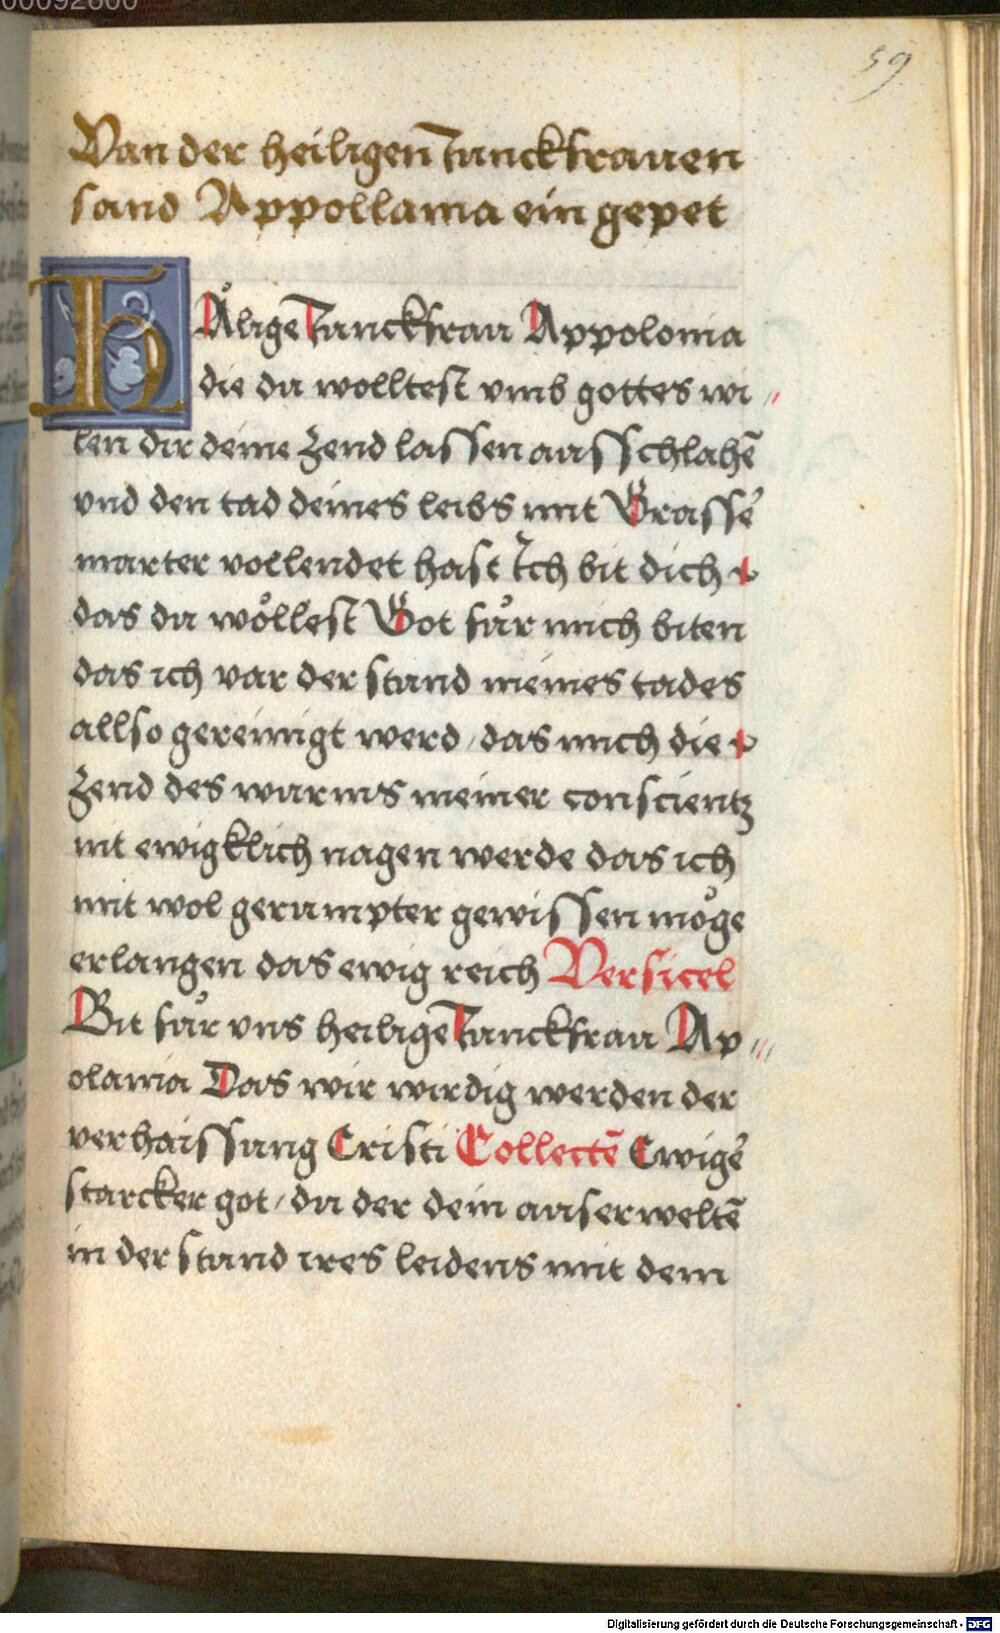 00092600
59
Van der heiligen Junckfrauen
sand Appollania ein gepet
HAͤlige Junckfrau Appolonia
die du wolltest vmb gottes wi〃
len dir deine Zend lassen ausschlahē
vnd den tod deines leibs mit Grosser̄
marter vollendet hast Ich bit dich
das du woͤllest Got fuͤr mich biten
das ich vor der stund meines todes
allso gereinigt werd / das mich die
Zend des wurms meiner conscientz
nit ewigklich nagen werde das ich
mit wol gerumpter gewissen moͤge
erlangen das ewig reich Versicel
Bit fuͤr vns heilige Junckfrau Ap〃
olonia Das wir wirdig werden der
verhaissung Cristi Collectē Ewigē
starcker got / du der dein auserweltē
in der stund ires leidens mit dem
Digitalisierung gefördert durch die Deutsche Forschungsgemeinschaft - DFG